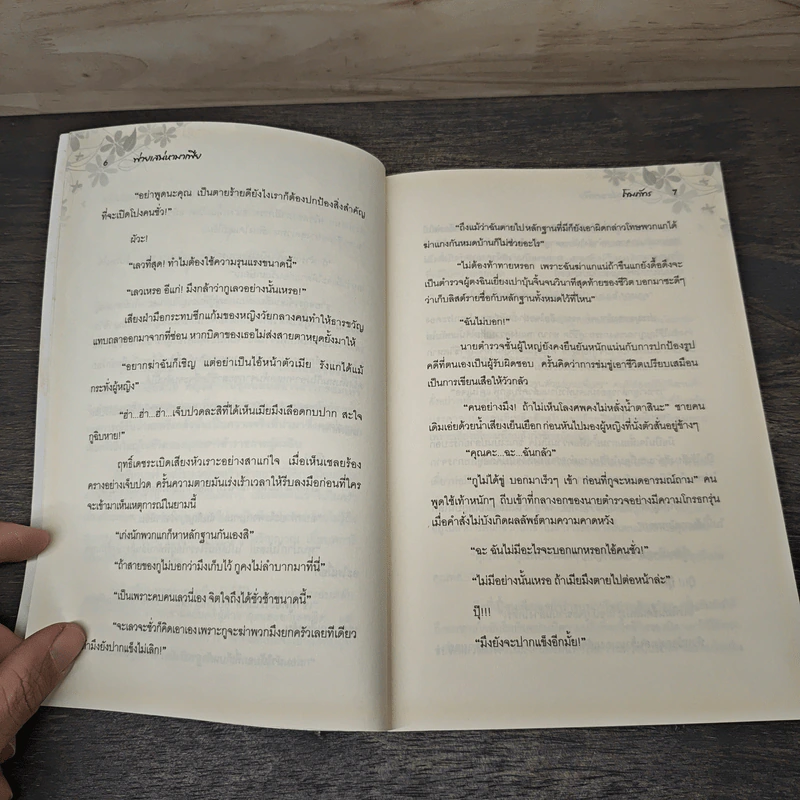 6 พ่ายเสน่หามาเฟีย
"อย่าพูดนะคุณ เป็นตายร้ายดียังไงเราก็ต้องปกป้องสิ่งสำคัญ
ที่จะเปิดโปงคนชั่ว!"
ผัวะ!
"เลวที่สุด! ทำไมต้องใช้ความรุนแรงขนาดนี้"
"เลวเหรอ อีแก่! มึงกล้าว่ากูเลวอย่างนั้นเหรอ!"
เสียงฝ่ามือกระทบซีกแก้มของหญิงวัยกลางคนทำให้ธารขวัญ
แทบถลาออกมาจากที่ซ่อน หากบิดาของเธอไม่ส่งสายตาหยุดยั้งมาให้
"อยากฆ่าฉันก็เชิญ แต่อย่าเป็นไอ้หน้าตัวเมีย รังแกได้แม้
กระทั่งผู้หญิง"
"ฮ่า...ฮ่า...ฮ่า...เจ็บปวดละสิที่ได้เห็นเมียมึงเลือดกบปาก สะใจ
กูฉิบหาย!"
ฤทธิ์เดชระเบิดเสียงหัวเราะอย่างสาแก่ใจ เมื่อเห็นเชลยร้อง
ครางอย่างเจ็บปวด ครั้นความตายมันเร่งเร้าเวลาให้รีบลงมือก่อนที่ใคร
จะเข้ามาเห็นเหตุการณ์ในยามนี้
"เก่งนักพวกแกก็หาหลักฐานกันเองสิ"
"ถ้าสายของกูไม่บอกว่ามึงเก็บไว้ กูคงไม่ลำบากมาที่นี่"
"เป็นเพราะคบคนเลวนี่เอง จิตใจถึงได้ชั่วช้าขนาดนี้"
"จะเลวจะชั่วก็คิดเอาเอง เพราะกูจะฆ่าพวกมึงยกครัวเลยทีเดียว
ถ้ามึงยังปากแข็งไม่เลิก!"
7
"ถึงแม้ว่าฉันตายไปหลักฐานที่มีก็ยังเอาผิดกล่าวโทษพวกแกได้
ฆ่าแกงกันหมดบ้านก็ไม่ช่วยอะไร"
"ไม่ต้องท้าทายหรอก เพราะฉันฆ่าแกแน่ถ้าขืนแกยังดื้อดึงจะ
เป็นตำรวจผู้ตงฉินเยี่ยงเปาบุ้นจิ้นจนวินาทีสุดท้ายของชีวิต บอกมาซะดีๆ
ว่าเก็บลิสต์รายชื่อกับหลักฐานทั้งหมดไว้ที่ไหน"
"ฉันไม่บอก!"
นายตำรวจชั้นผู้ใหญ่ยังคงยืนยันหนักแน่นกับการปกป้องรูป
คดีที่ตนเองเป็นผู้รับผิดชอบ ครั้นคิดว่าการข่มขู่เอาชีวิตเปรียบเสมือน
เป็นการเขียนเสือให้วัวกลัว
"คนอย่างมึง! ถ้าไม่เห็นโลงศพคงไม่หลั่งน้ำตาสินะ" ชายคน
เดิมเอ่ยด้วยน้ำเสียงเย็นเยือก ก่อนหันไปมองผู้หญิงที่นั่งตัวสั่นอยู่ข้างๆ
"คุณคะ...ฉะ...ฉันกลัว"
"กูไม่ได้ขู่ บอกมาเร็วๆ เข้า ก่อนที่กูจะหมดอารมณ์ถาม" คน
พูดใช้เท้าหนักๆ ถีบเข้าที่กลางอกของนายตำรวจอย่างมีความโกรธกรุ่น
เมื่อคำสั่งไม่บังเกิดผลลัพธ์ตามความคาดหวัง
"ฉะ ฉันไม่มีอะไรจะบอกแกหรอกไอ้คนชั่ว!"
"ไม่มีอย่างนั้นเหรอ ถ้าเมียมึงตายไปต่อหน้าล่ะ"
ปุ๊!!!
"มึงยังจะปากแข็งอีกมั้ย!"